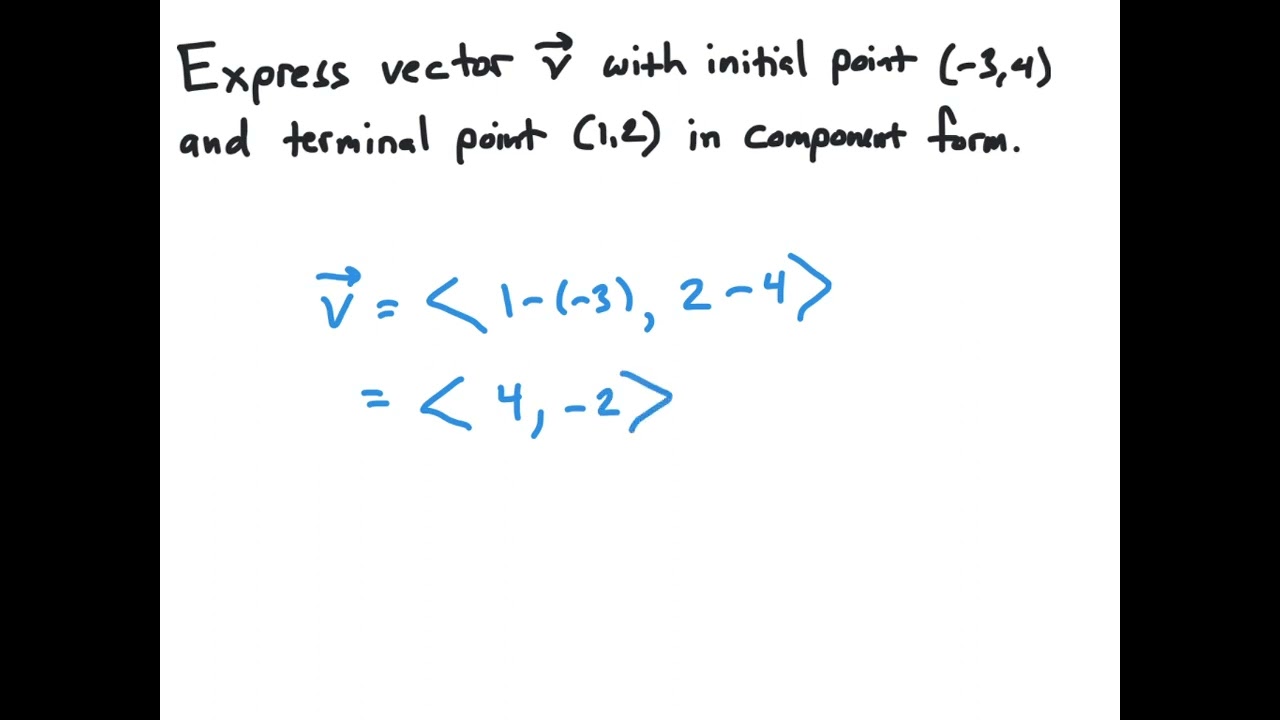 Express vector v⃗ with initial point (-3,4)
and terminal point (1,2) in component form.
v⃗ = < 1-(-3), 2-4>
= < 4, -2>